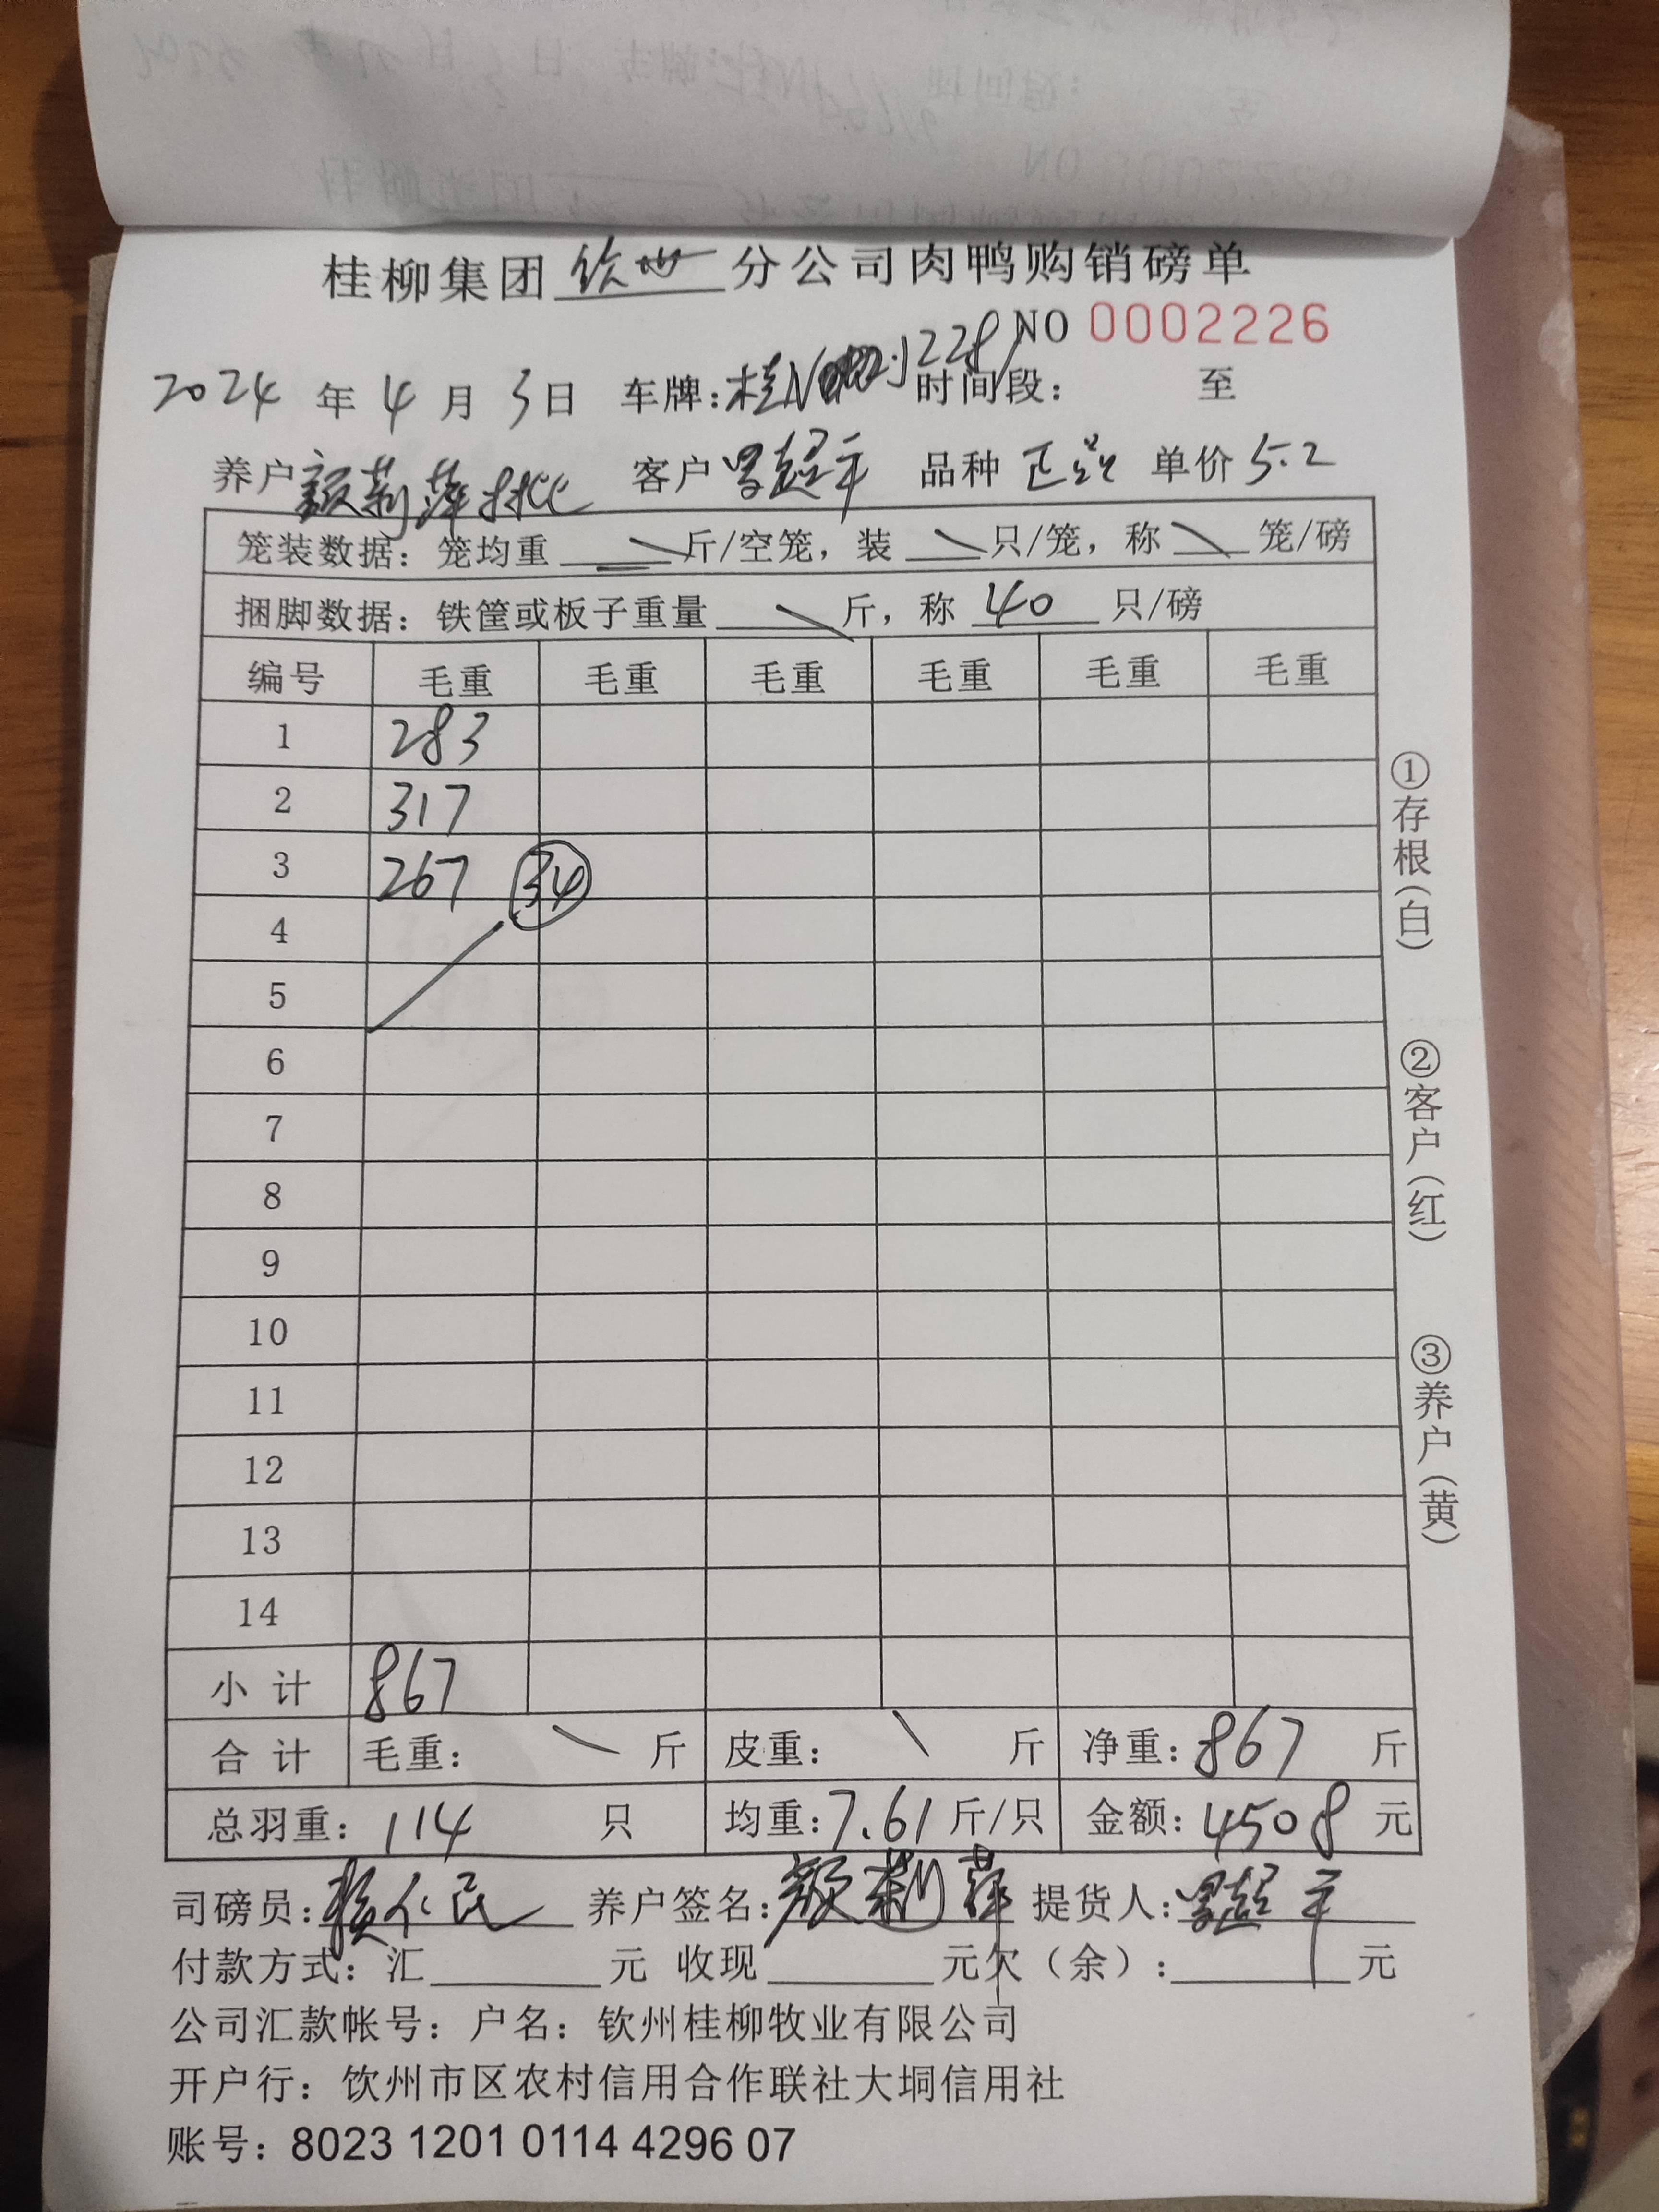 桂柳集团 钦州 分公司肉鸭购销磅单
NO 0002226
2024 年 4 月 3 日 车牌:桂N 228 时间段: 至
养户 颜莉萍 客户 超平 品种 单价 5.2
笼装数据: 笼均重 斤/空笼, 装 只/笼, 称 笼/磅
捆脚数据: 铁筐或板子重量 斤, 称 40 只/磅
编号 毛重 毛重 毛重 毛重 毛重 毛重
1 283
2 317
3 267 34
4
5
6
7
8
9
10
11
12
13
14
小计 867
合计 毛重: 斤 皮重: 斤 净重: 867 斤
总羽重: 114 只 均重: 7.61 斤/只 金额: 4508 元
司磅员: 仁民 养户签名: 颜莉萍 提货人: 超平
付款方式: 汇 元 收现 元欠(余): 元
公司汇款帐号: 户名: 钦州桂柳牧业有限公司
开户行: 钦州市区农村信用合作联社大垌信用社
账号: 8023 1201 0114 4296 07
①存根(白)
②客户(红)
③养户(黄)